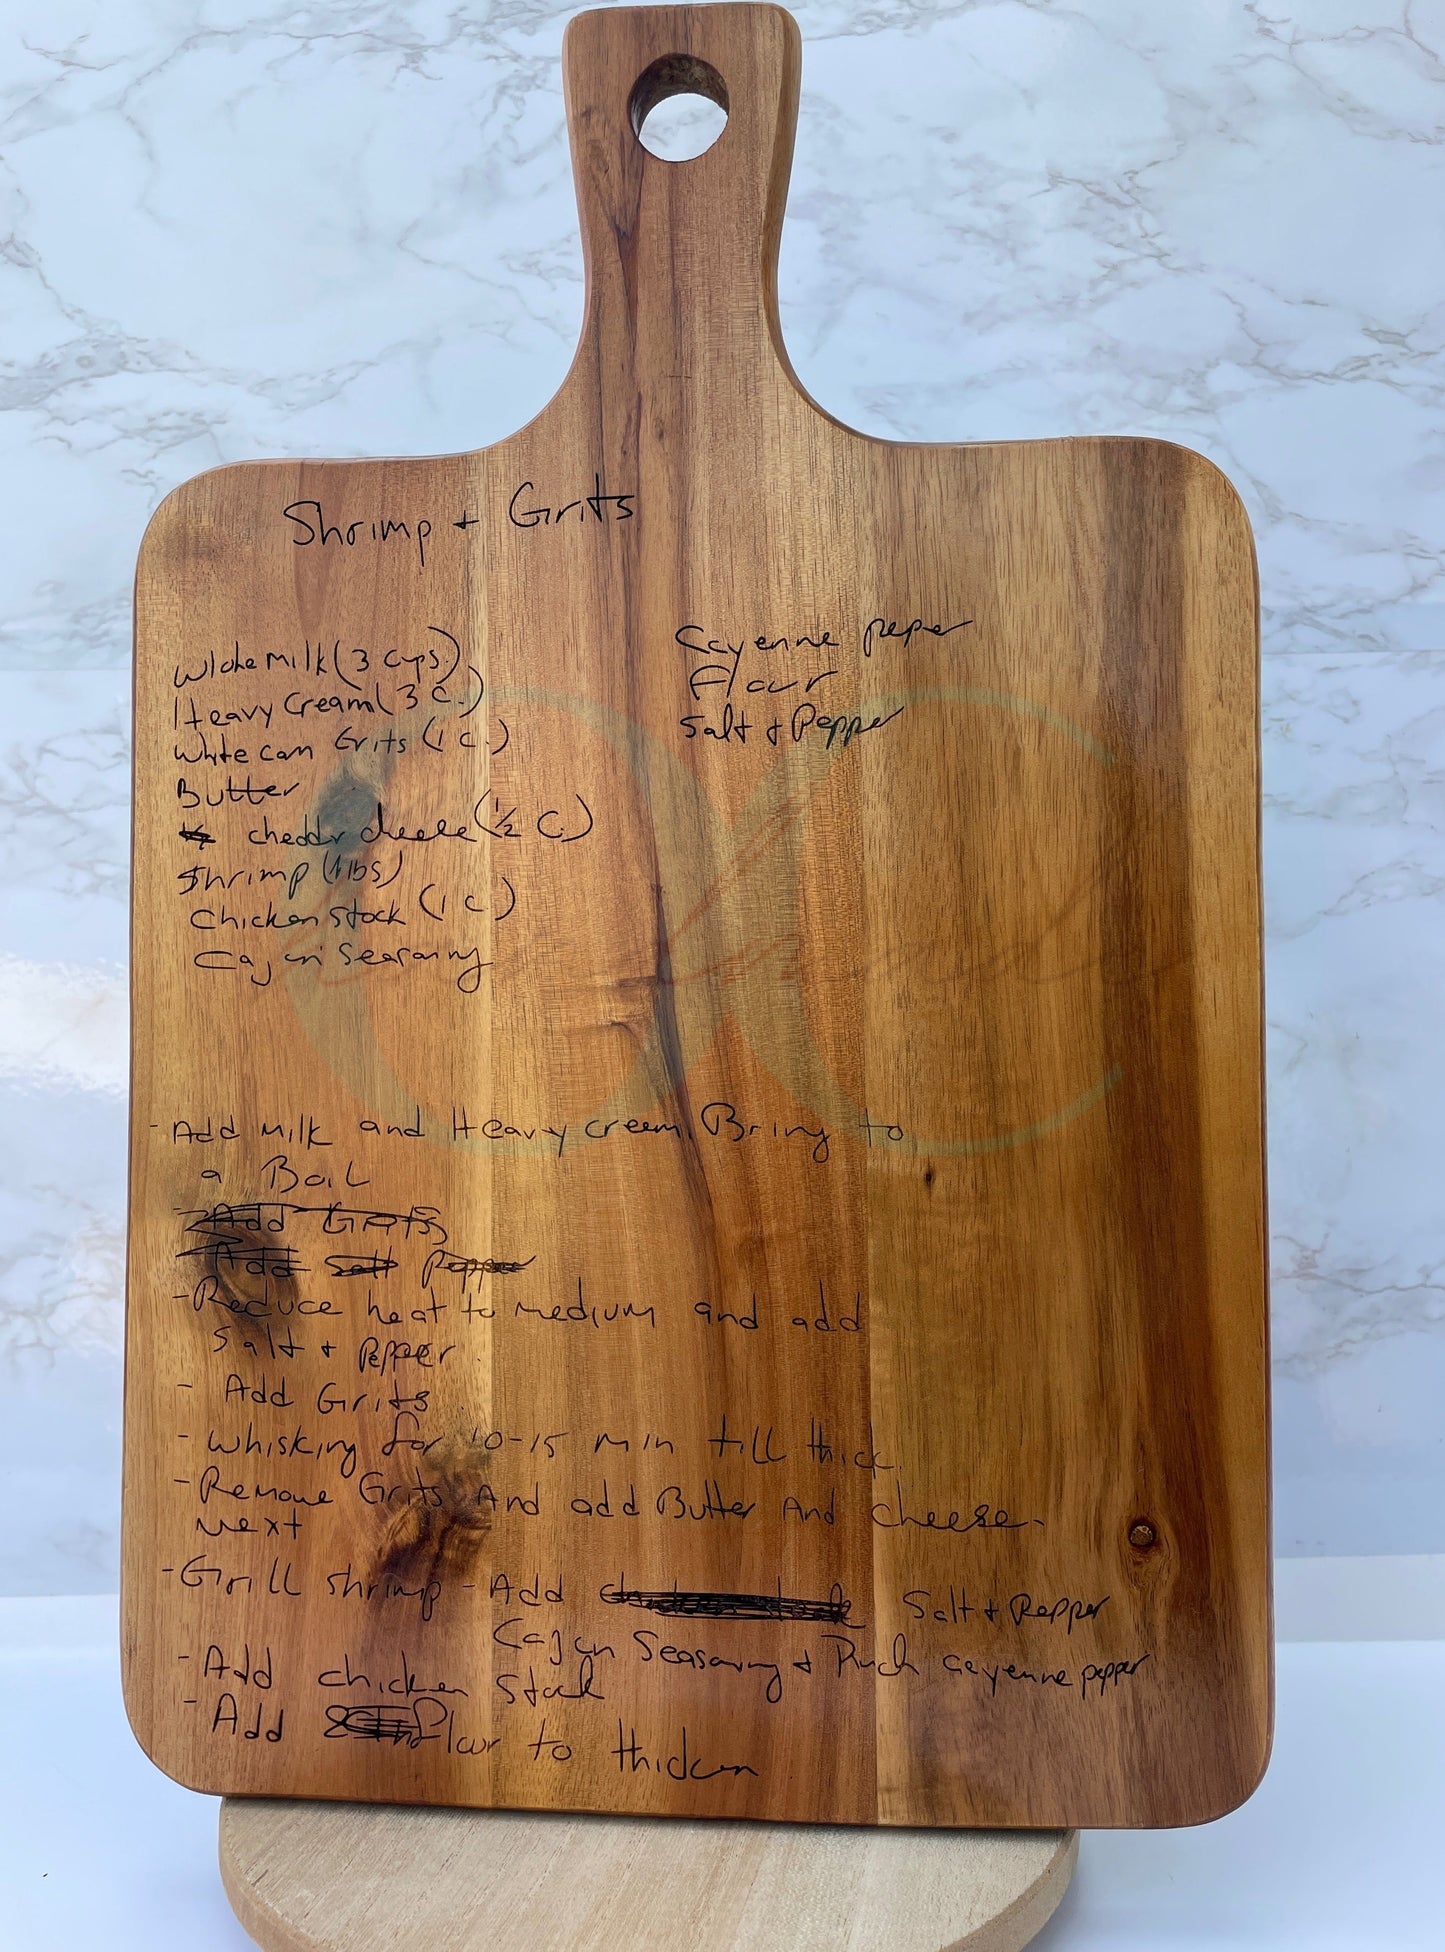 Shrimp + Grits
Whole Milk (3 cups)
Heavy Cream (3 c.)
White corn Grits (1 c.)
Butter
cheddr cheese (1/2 C.)
Shrimp (1lbs)
Chicken stock (1 c)
Cajun Seasoning
Cayenne peper
Flour
Salt + Pepper
- Add Milk and Heavy cream. Bring to
a Boil
- Add Grits
- Add Salt Pepper
- Reduce heat to medium and add
Salt + Pepper.
- Add Grits.
- Whisking for 10-15 min till thick.
- Remove Grits And add Butter And cheese.
Next
- Grill shrimp - Add chicken stock Salt + Pepper
Cajun Seasoning + Pinch cayenne pepper
- Add chicken stock
- Add flour to thicken